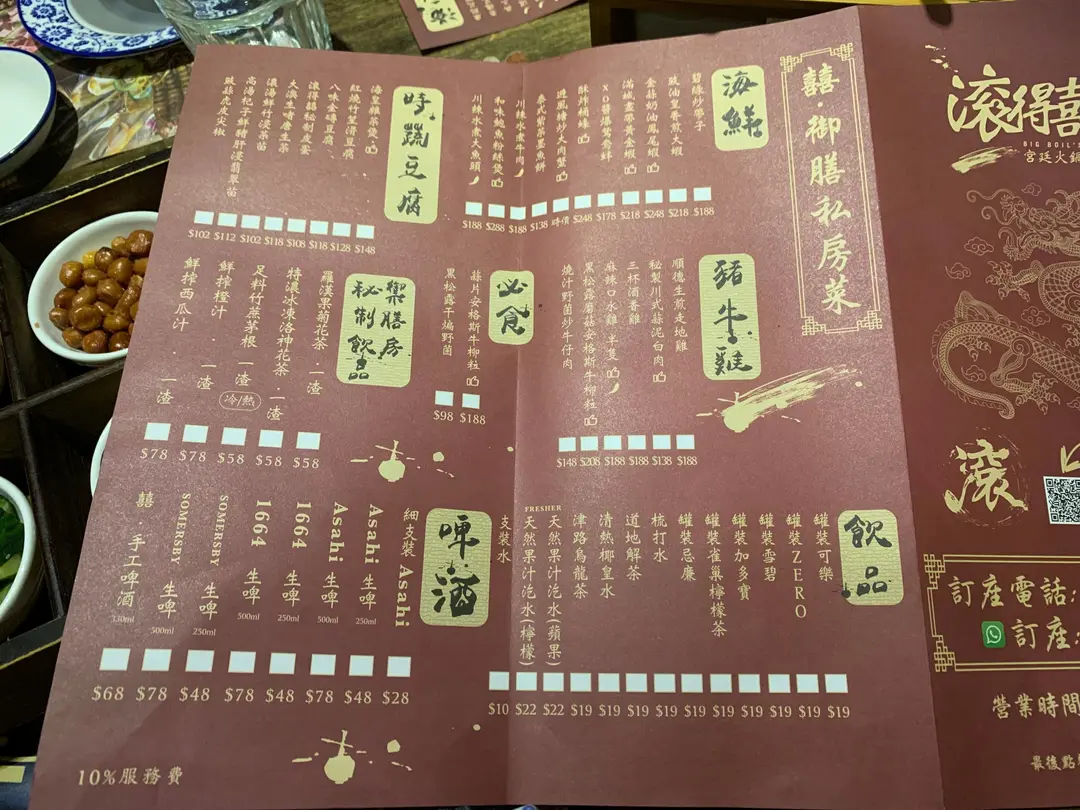 囍·御膳私房菜
海鮮
碧綠炒帶子 $188
豉油皇香煎大蝦 $218
金蒜奶油鳳尾蝦 $248
滿城盡帶黃金蝦 $218
XO醬爆鴛鴦蚌 $178
酥炸桶蠔 $248
避風塘炒大肉蟹 時價
泰式紫菜墨魚餅 $138
川辣水煮牛肉 $188
和味鮑魚粉絲煲 $288
川辣水煮大魚頭 $188
時蔬豆腐
海皇 煲 $148
紅燒竹笙滑豆腐 $128
八味金磚豆腐 $118
滾得囍秘制 $108
大馬 唐生菜 $118
濃湯鮮竹浸菜苗 $102
高湯杞子鮮豬肝浸翡翠苗 $112
豉蒜虎皮尖椒 $102
豬牛雞
順德生煎走地雞 $188
秘製川式蒜泥白肉 $138
三杯酒香雞 $188
麻辣口水雞 半隻 $188
黑松露蘑菇安格斯牛柳粒 $208
燒汁野菌炒牛仔肉 $148
必食
蒜片安格斯牛柳粒 $188
黑松露干煸野菌 $98
禦膳房秘制飲品
羅漢果菊花茶 · 一渣 $58
特濃冰凍洛神花茶 · 一渣 $58
足料竹蔗茅根 · 一渣 (冷/熱) $58
鮮搾橙汁 · 一渣 $78
鮮搾西瓜汁 · 一渣 $78
飲品
罐裝可樂 $19
罐裝ZERO $19
罐裝雪碧 $19
罐裝加多寶 $19
罐裝雀巢檸檬茶 $19
罐裝忌廉 $19
梳打水 $19
道地解茶 $19
清熱椰皇水 $19
津路烏龍茶 $19
FRESHER
天然果汁汽水(蘋果) $22
天然果汁汽水(檸檬) $22
支裝水 $10
啤酒
細支裝 Asahi $28
Asahi 生啤 250ml $48
Asahi 生啤 500ml $78
1664 生啤 250ml $48
1664 生啤 500ml $78
SOMERSBY 生啤 250ml $48
SOMERSBY 生啤 500ml $78
囍 手工啤酒 330ml $68
10%服務費
滾得囍
BIG BOIL'S
宮廷火鍋
滾
訂座電話:
訂座:
營業時間
最後點